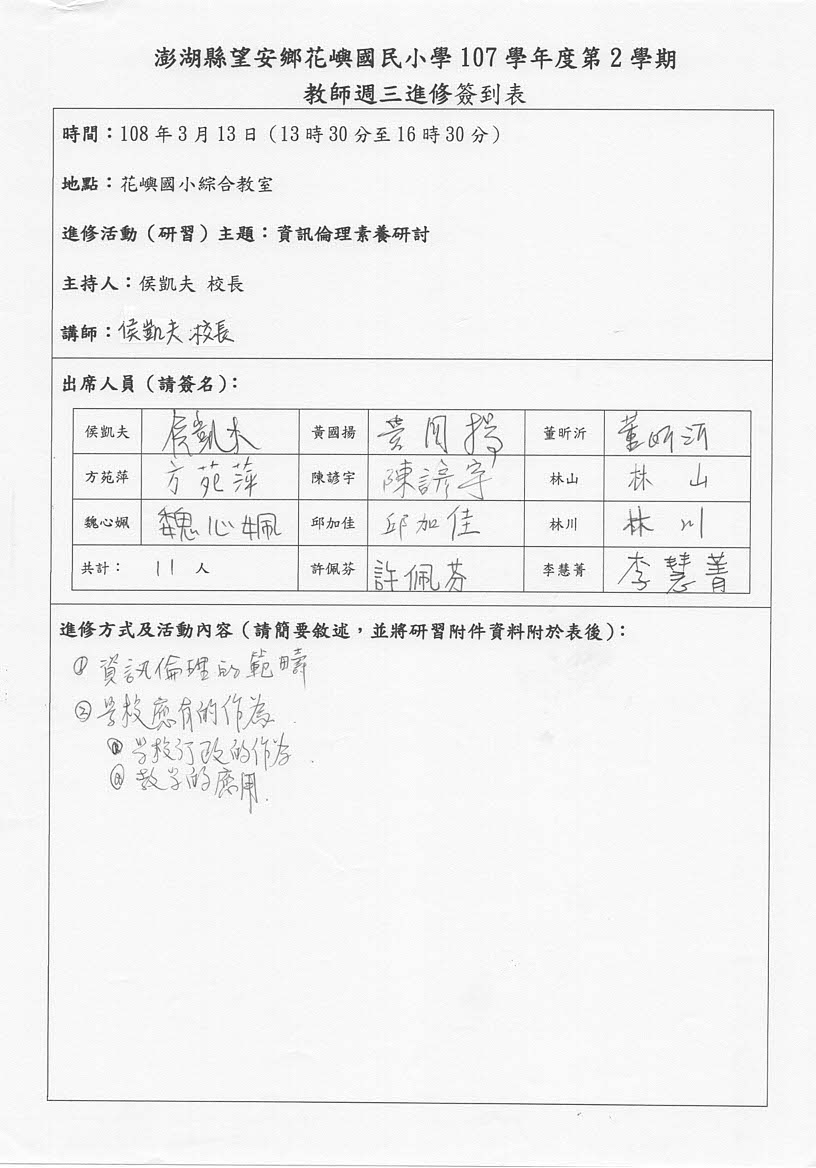 澎湖縣望安鄉花嶼國民小學 107 學年度第 2 學期
教師週三進修簽到表
時間：108 年 3 月 13 日（13 時 30 分至 16 時 30 分）
地點：花嶼國小綜合教室
進修活動（研習）主題：資訊倫理素養研討
主持人：侯凱夫 校長
講師：侯凱夫 校長
出席人員（請簽名）：
侯凱夫 侯凱夫 黃國揚 黃国揚 董昕沂 董昕沂
方苑萍 方苑萍 陳諺宇 陳諺宇 林山 林山
魏心姵 魏心姵 邱加佳 邱加佳 林川 林川
共計： 11 人 許佩芬 許佩芬 李慧菁 李慧菁
進修方式及活動內容（請簡要敘述，並將研習附件資料附於表後）：
① 資訊倫理的範疇
② 学校應有的作為.
① 学校行政的作為.
② 教学的應用.